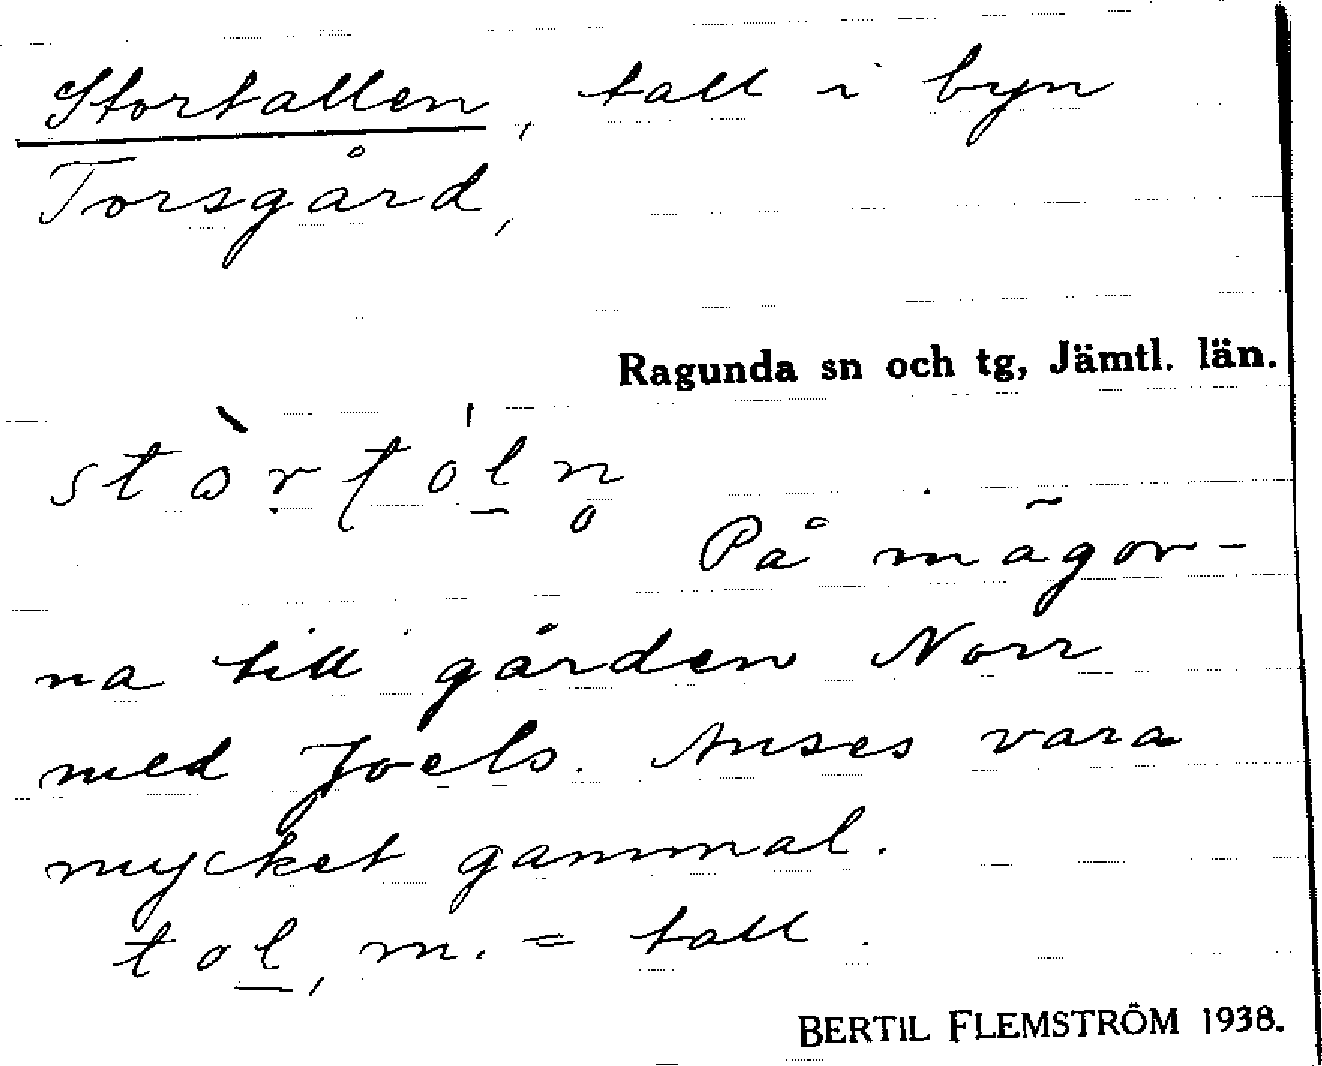 Stortallen, tall i byn
Torsgård,
Ragunda sn och tg, Jämtl. län.
På mågor-
na till gården Norr
med Joels. Anses vara
mycket gammal.
tol, m. = tall.
BERTIL FLEMSTRÖM 1938.